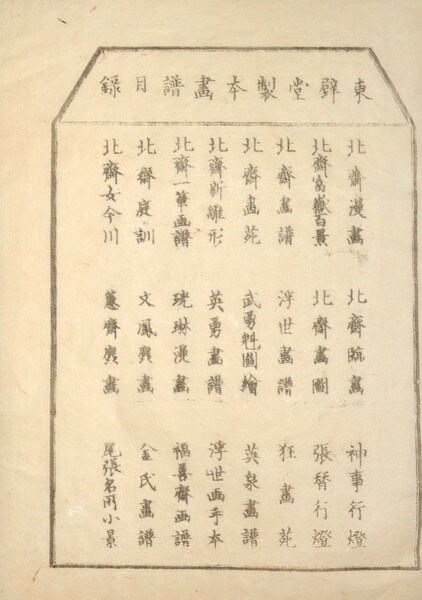 東壁堂製本畫譜目錄
北齋漫畫 北齋疏畫 神事行燈
北齋富嶽百景 北齋畫圖 張替行燈
北齋畫譜 浮世畫譜 狂畫苑
北齋畫苑 武勇魁圖繪 英泉畫譜
北齋新雛形 英勇畫譜 浮世画手本
北齋一筆画譜 珖琳漫畫 福善齋画譜
北齋庭訓 文鳳麁畫 金氏畫譜
北齋女今川 蕙齋麁畫 尾張名所小景